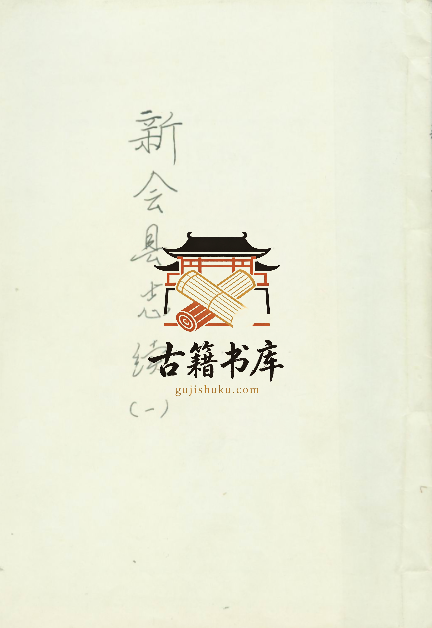 新会县志续
(一)
古籍书库
gujishuku.com